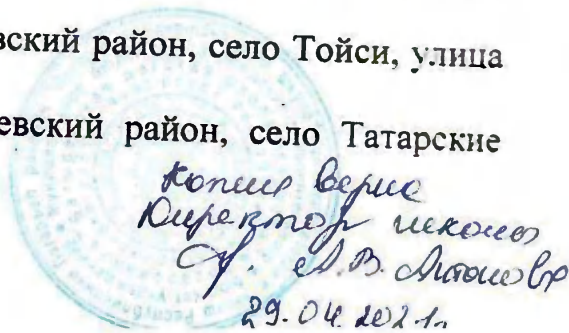 вский район, село Тойси, улица
евский район, село Татарские
Копия верна
Директор школы
А.В.
29.04.2021г.